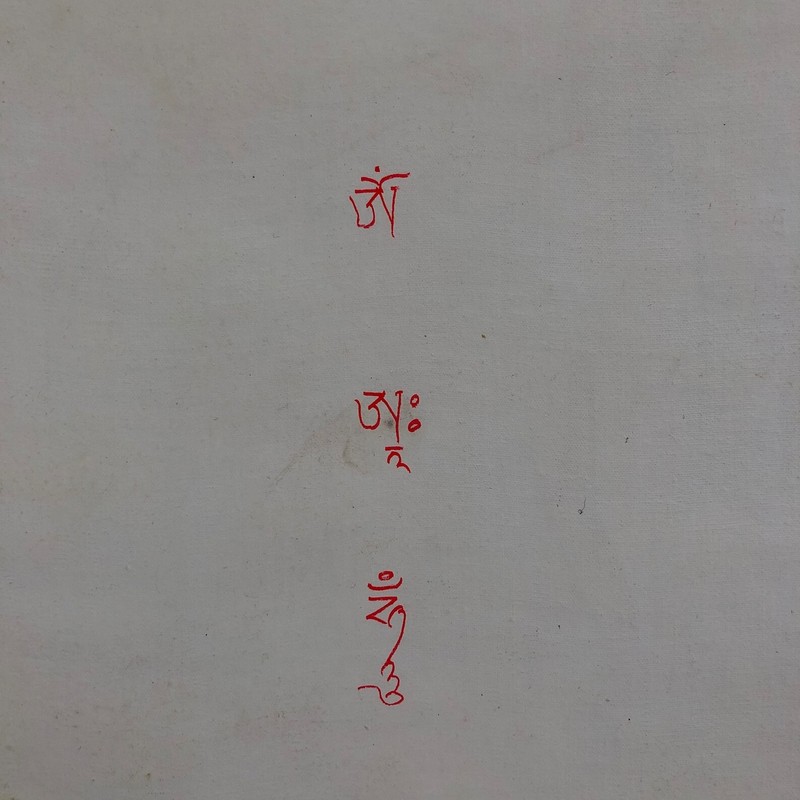 ཨོཾ
ཨཱཿ
ཧཱུྃ